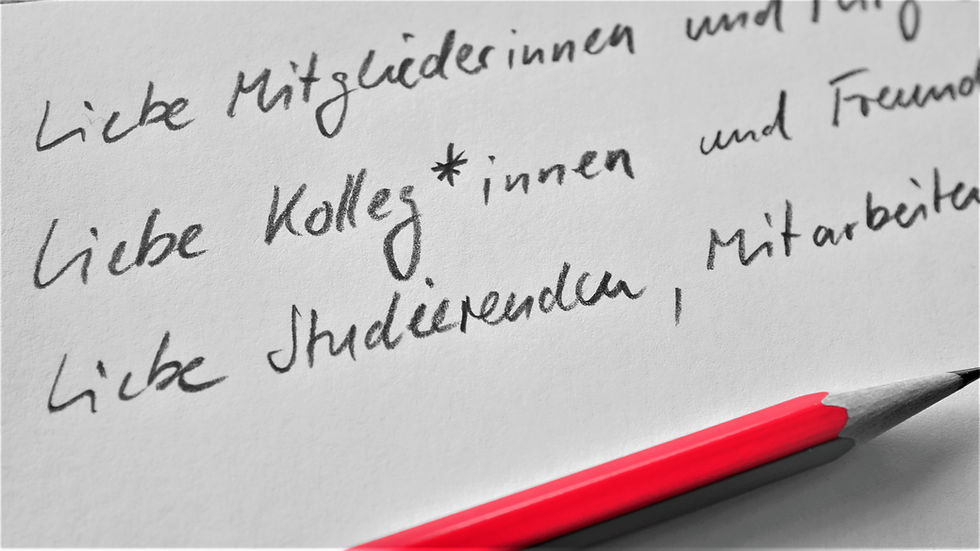 Liebe Mitgliederinnen und
Liebe Kolleg*innen und Freund
Liebe Studierenden, Mitarbeiten